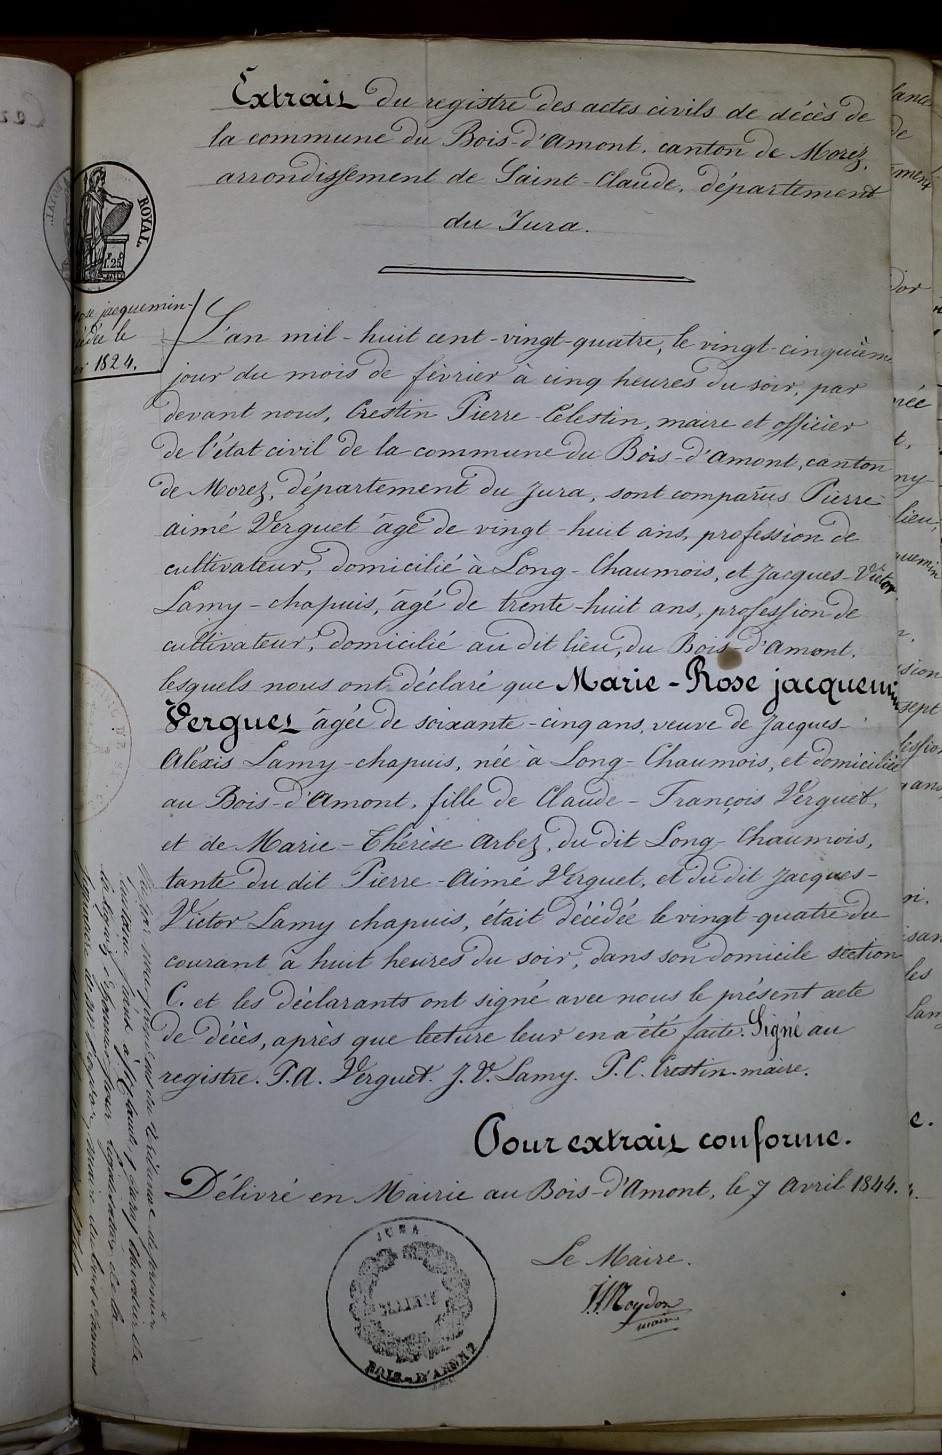 Extrait du registre des actes civils de décès de
la commune du Bois-d'Amont, canton de Morez,
arrondissement de Saint-Claude, département
du Jura.
ROYAL.
1.25
Rose jacquemin-
le
1824.
L'an mil-huit cent-vingt-quatre, le vingt-cinquième
jour du mois de février à cinq heures du soir, par
devant nous, Crestin Pierre-Célestin, maire et officier
de l'état civil de la commune du Bois-d'Amont, canton
de Morez, département du Jura, sont comparus Pierre
aimé Verguet âgé de vingt-huit ans, profession de
cultivateur, domicilié à Long-Chaumois, et Jacques-Victor
Lamy-chapuis, âgé de trente-huit ans, profession de
cultivateur, domicilié au dit lieu, du Bois-d'Amont.
lesquels nous ont déclaré que Marie-Rose jacquemin
Verguet âgée de soixante-cinq ans, veuve de Jacques-
Aléxis Lamy-chapuis, née à Long-Chaumois, et domiciliée
au Bois-d'Amont, fille de Claude-François Verguet,
et de Marie-Thérèse Arbez, du dit Long-Chaumois,
tante du dit Pierre-Aimé Verguet, et du dit Jacques-
Victor Lamy chapuis, était décédée le vingt-quatre du
courant à huit heures du soir, dans son domicile section
C. et les déclarants ont signé avec nous le présent acte
de décès, après que lecture leur en a été faite. Signé au
registre. P.A. Verguet. J.V. Lamy. P.C. Crestin-maire.
Pour extrait conforme.
Délivré en Mairie au Bois-d'Amont, le 7 Avril 1844.
Le Maire.
maire
JURA
MAIRIE
BOIS-D'AMONT